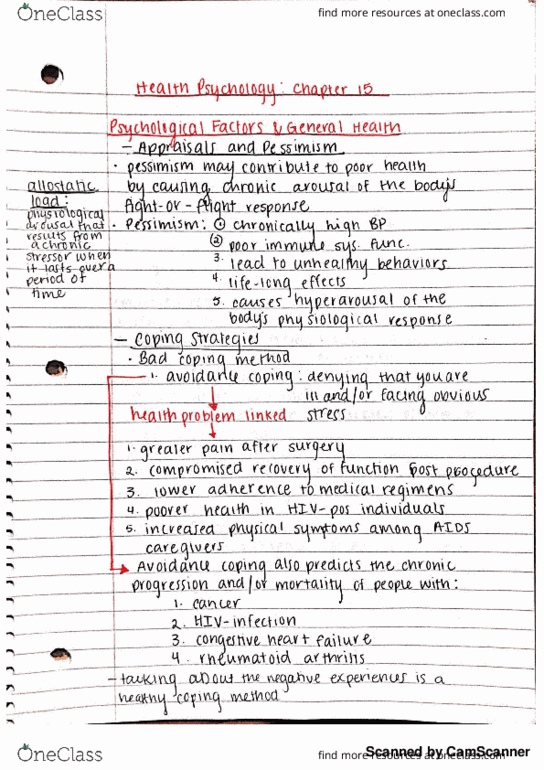 OneClass
find more resources at oneclass.com
Health Psychology: Chapter 15
Psychological Factors & General Health
- Appraisals and Pessimism
• pessimism may contribute to poor health
by causing chronic arousal of the body's
fight-or-flight response
allostatic
load:
physiological
arousal that
results from
a chronic
stressor when
it lasts over a
period of
time
• Pessimism: ① chronically high BP
② poor immune sys. func.
3. lead to unhealthy behaviors
4. life-long effects
5. causes hyperarousal of the
body's physiological response
- Coping Strategies
• Bad coping method
1. avoidance coping: denying that you are
ill and/or facing obvious
stress
health problem linked
1. greater pain after surgery
2. compromised recovery of function post procedure
3. lower adherence to medical regimens
4. poorer health in HIV-pos individuals
5. increased physical symptoms among AIDS
caregivers
Avoidance coping also predicts the chronic
progression and/or mortality of people with:
1. cancer
2. HIV-infection
3. congestive heart failure
4. rheumatoid arthritis
- talking about the negative experiences is a
healthy coping method
OneClass
find more resources at oneclass.com
Scanned by CamScanner